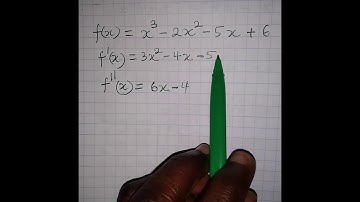 f(x) = x³ - 2x² - 5x + 6
f'(x) = 3x² - 4x - 5
f''(x) = 6x - 4